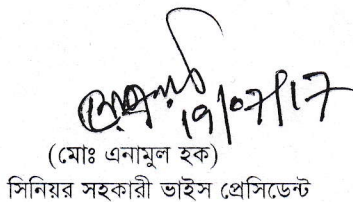 19/07/17
(মোঃ এনামুল হক)
সিনিয়র সহকারী ভাইস প্রেসিডেন্ট